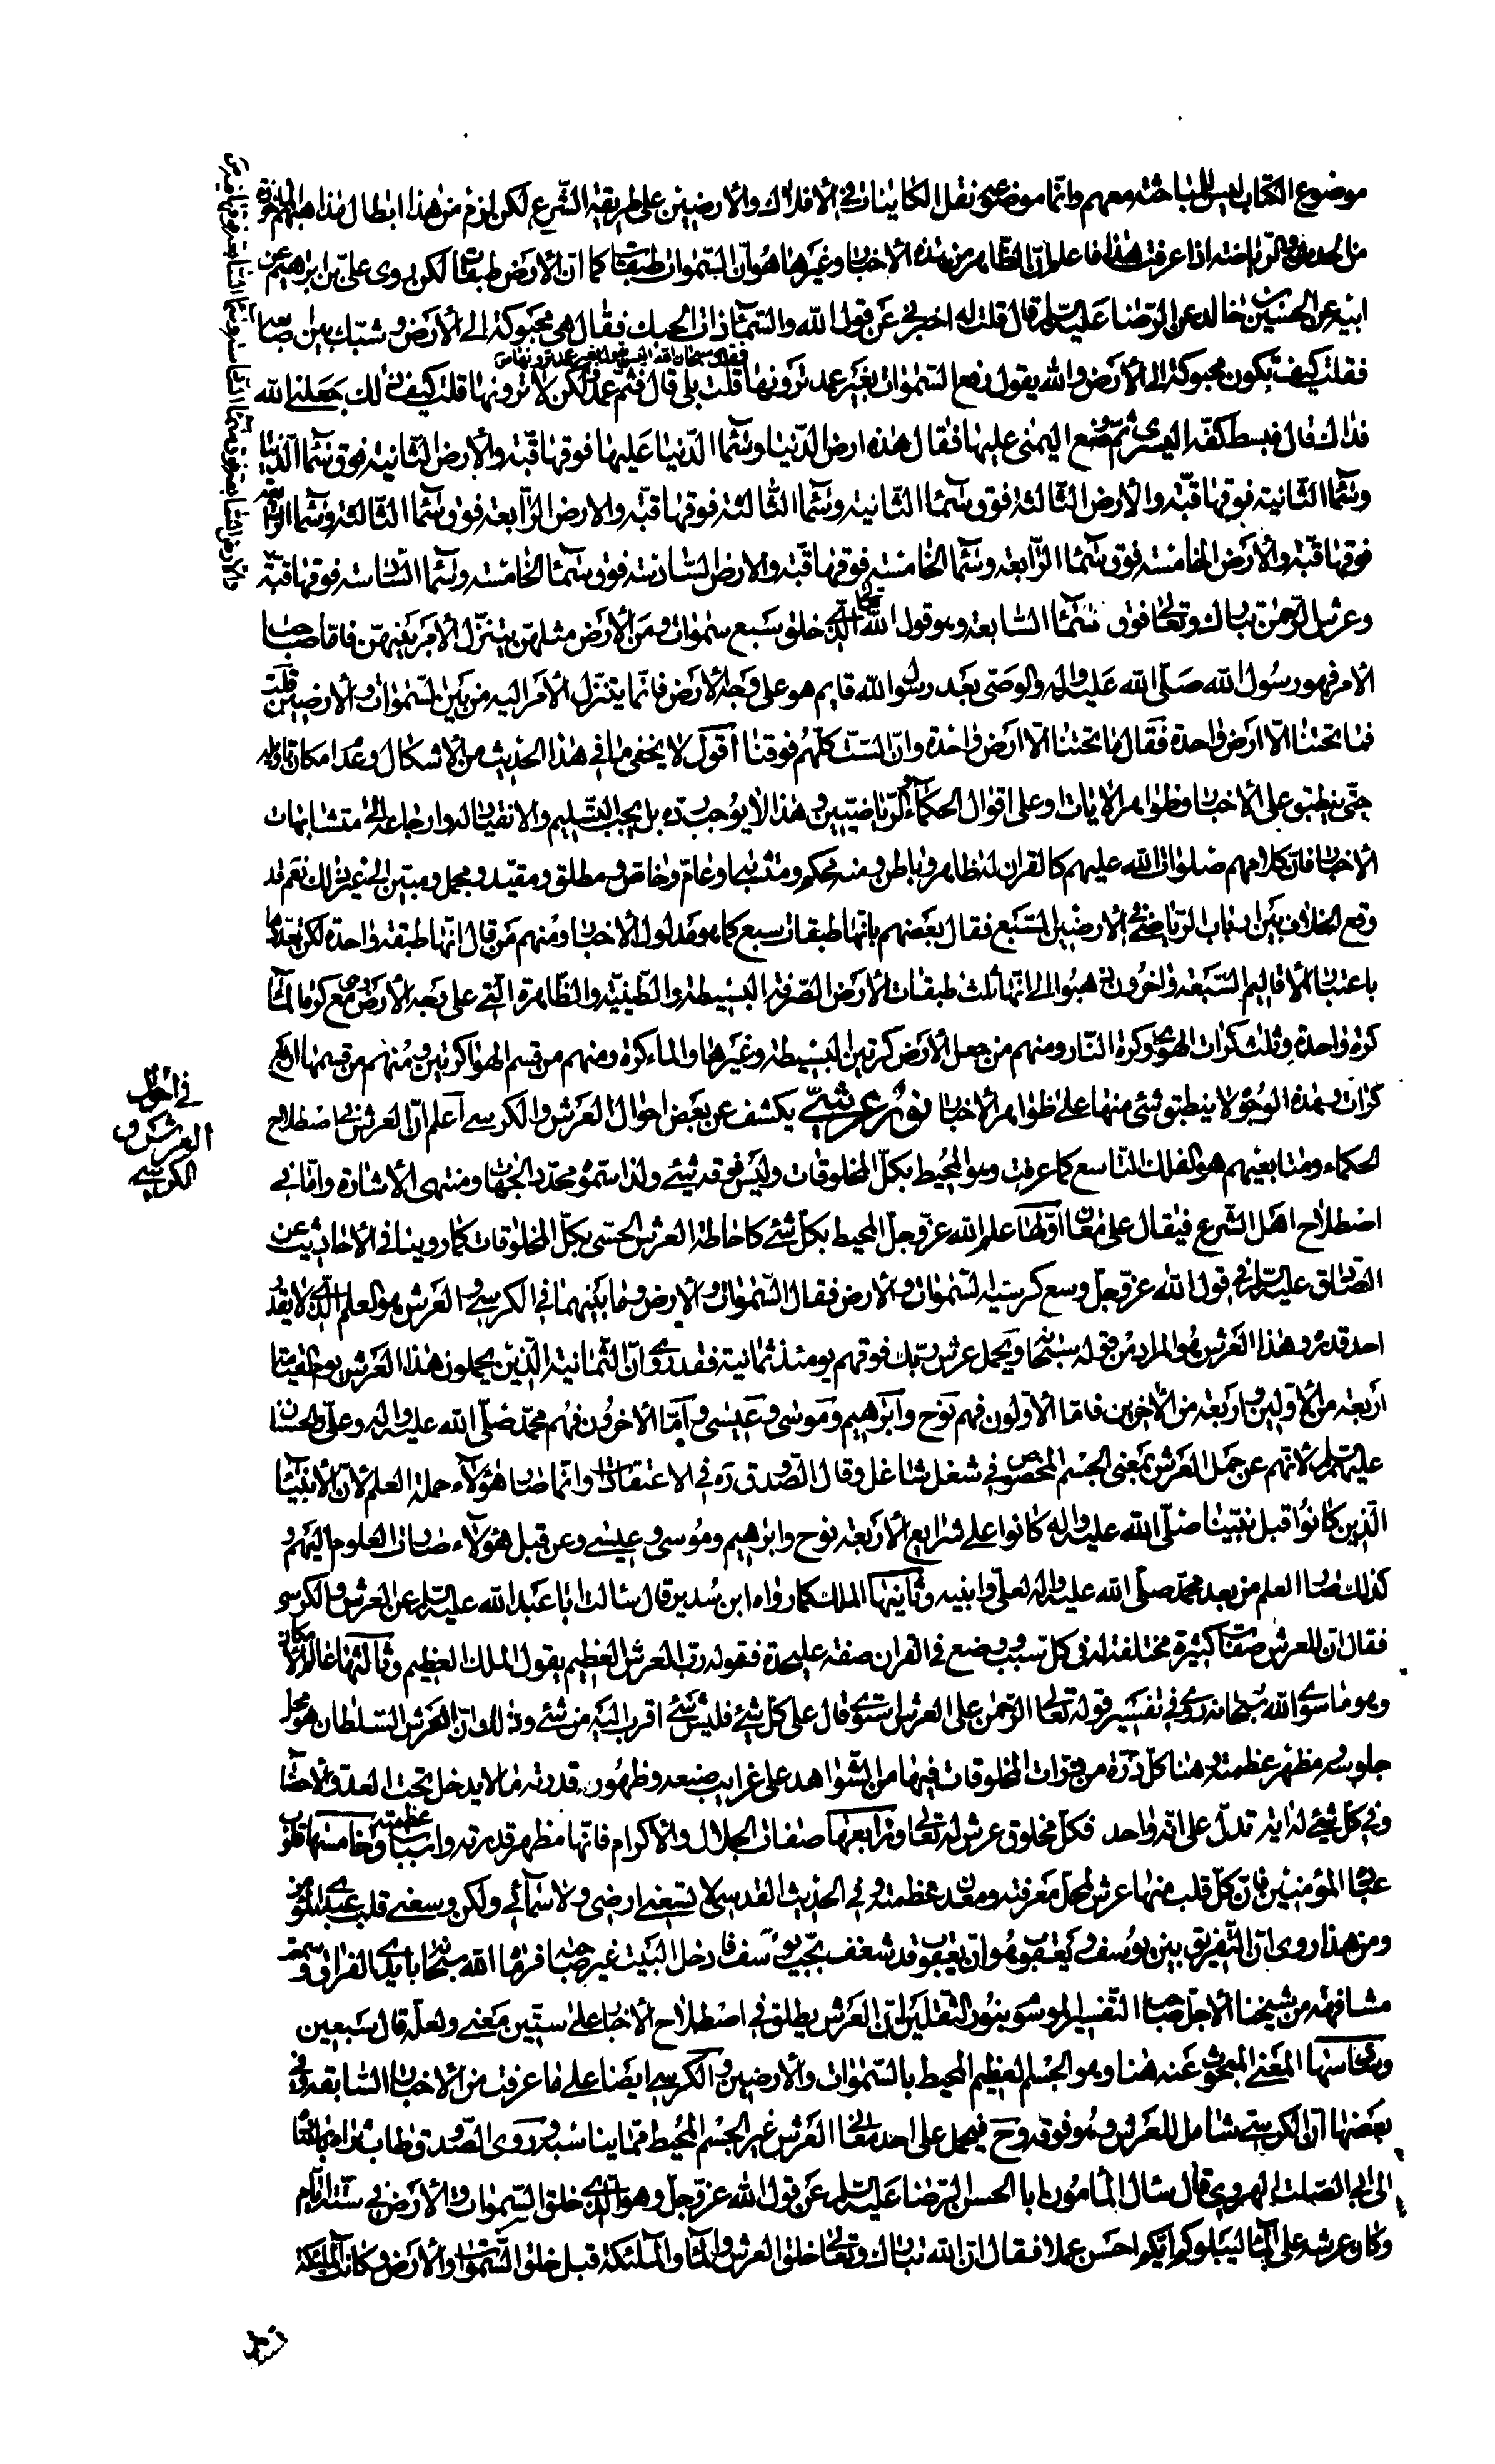 موضوع الكتاب ليس للمباحثة معهم وانما موضوعه نقل الكاينات في الأفلاك والأرضين على طريقة الشرع لكن لزم من هذا ابطال مذاهبهم
اذا عرفت هذا فاعلم ان الظاهر من هذه الأخبار وغيرها هو ان السموات طبقات كما ان الأرض طبقات لكن روى علي بن ابراهيم عن
ابيه عن الحسين بن خالد عن الرضا عليه السلم قال قلت له اخبرني عن قول الله والسماء ذات الحبك فقال هي محبوكة الى الأرض وشبك بين اصابعه
فقلت كيف تكون محبوكة الى الأرض والله يقول رفع السموات بغير عمد ترونها فقال سبحان الله اليس يقول بغير عمد ترونها قلت بلى قال فثم عمد ولكن لا ترونها قلت كيف ذلك جعلني الله
فداك قال فبسط كفه اليسرى ثم وضع اليمنى عليها فقال هذه ارض الدنيا وسماء الدنيا عليها فوقها قبة والأرض الثانية فوق سماء الدنيا
وسماء الثانية فوقها قبة والأرض الثالثة فوق سماء الثانية وسماء الثالثة فوقها قبة والارض الرابعة فوق سماء الثالثة وسماء الرابعة
فوقها قبة والأرض الخامسة فوق سماء الرابعة وسماء الخامسة فوقها قبة والارض السادسة فوق سماء الخامسة وسماء السادسة فوقها قبة
والارض السابعة فوق سماء السادسة وسماء السابعة فوقها قبة
وعرش الرحمن تبارك وتعالى فوق سماء السابعة وهو قول الله تعالى الذي خلق سبع سموات ومن الأرض مثلهن يتنزل الأمر بينهن فاما صاحب
الأمر فهو رسول الله صلى الله عليه واله والوصي بعد رسول الله قايم هو على وجه الأرض فانما يتنزل الأمر اليه من بين السموات والأرضين قلت
فما تحتنا الا ارض واحدة فقال ما تحتنا الا ارض واحدة وان الست كلهم فوقنا أقول لا يخفى ما في هذا الحديث من الاشكال وعدم امكان تأويله
حتى ينطبق على الأخبار وظواهر الايات او على اقوال الحكماء والرياضيين وهذا لا يوجب رده بل يجب التسليم والانقياد له وارجاعه الى متشابهات
الأخبار فان كلامهم صلوات الله عليهم كالقران له ظاهر وباطن ومنه محكم ومتشابه وعام وخاص ومطلق ومقيد ومجمل ومبين الى غير ذلك نعم قد
وقع الخلاف بين ارباب الرياضي في الأرضين السبع فقال بعضهم بانها طبقات سبع كما هو مدلول الأخبار ومنهم من قال انها طبقة واحدة لكن تعددها
باعتبار الأقاليم السبعة واخرون ذهبوا الى انها ثلث طبقات الأرض الصرفة البسيطة والطينية والظاهرة التي على وجه الأرض وهي مع كرة الماء
كرة واحدة وثلث كرات الهواء وكرة النار ومنهم من جعل الأرض كرتين البسيطة وغيرها والماء كرة ومنهم من قسم الهواء كرتين ومنهم من قسمها اربع
كرات وهذه الوجوه لا ينطبق شئ منها على ظواهر الأخبار نور عرشي يكشف عن بعض احوال العرش والكرسي اعلم ان العرش في اصطلاح
في احوال
العرش و
الكرسي
الحكماء ومتابعيهم هو الفلك التاسع كما عرفت وهو المحيط بكل المخلوقات وليس فوقه شئ ولذا سموه محدد الجهات ومنتهى الأشارة واما في
اصطلاح اهل الشرع فيقال على معان اولها علم الله عز وجل المحيط بكل شئ كاحاطة العرش الحسي بكل المخلوقات كما روينا في الأحاديث عن
الصادق عليه السلم في قول الله عز وجل وسع كرسيه السموات والأرض فقال السموات والأرض وما بينهما في الكرسي والعرش هو العلم الذي لا يقدر
احد قدره وهذا العرش هو المراد من قوله سبحانه ويحمل عرش ربك فوقهم يومئذ ثمانية فقد روى ان الثمانية الذين يحملون هذا العرش يوم القيامة
اربعة من الأولين واربعة من الأخرين فاما الأولون فهم نوح وابرهيم وموسى وعيسى واما الأخرون فهم محمد صلى الله عليه واله وعلي والحسنان
عليهم السلم لأنهم عن حمل العرش بمعنى الجسم المخصوص في شغل شاغل وقال الصدوق ره في الاعتقادات وانما صار هؤلاء حملة العلم لأن الأنبياء
الذين كانوا قبل نبينا صلى الله عليه واله كانوا على شرايع الأربعة نوح وابرهيم وموسى وعيسى وعن قبل هؤلاء صارت العلوم اليهم و
كذلك صار العلم من بعد محمد صلى الله عليه واله لعلي وابنيه وثانيها الملك كما رواه ابن سدير قال سالت ابا عبد الله عليه السلم عن العرش والكرسي
فقال ان للعرش صفات كثيرة مختلفة له في كل سبب وضع في القران صفة على حدة فقوله رب العرش العظيم يقول الملك العظيم وثالثها عالم الامكان
وهو ما سوى الله سبحانه روى في تفسير قوله تعالى الرحمن على العرش استوى قال على كل شئ فليس شئ اقرب اليه من شئ وذلك ان العرش السلطان هو محل
جلوسه مظهر عظمته وهنا كل ذرة من ذرات المخلوقات فيها من الشواهد على غرايب صنعه وظهور قدرته ما لا يدخل تحت العد والاحصاء
وفي كل شئ له اية تدل على انه واحد فكل مخلوق عرش له تعالى ورابعها صفات الجلال والأكرام فانها مظهر قدرته واسباب عظمته وخامسها قلوب
عباده المؤمنين فان كل قلب منها عرش لمحل معرفته ومعدن عظمته وفي الحديث القدسي لا يسعني ارضي ولا سمائي ولكن وسعني قلب عبدي المؤمن
ومن هذا روى ان التفريق بين يوسف ويعقوب هو ان يعقوب قد شغف بحب يوسف فادخل البيت غير صاحبه فرماه الله سبحانه بايدي الفراق وسمعت
مشافهة من شيخنا الأجل صاحب التفسير الموسوم بنور الثقلين ان العرش يطلق في اصطلاح الأخبار على ستين معنى ولعله قال سبعين
وسادسها المعنى المبحوث عنه هنا وهو الجسم العظيم المحيط بالسموات والأرضين والكرسي ايضا على ما عرفت من الأخبار السابقة وفي
بعضها ان الكرسي شامل للعرش وهو فوقه وح فيحمل على احد معاني العرش غير الجسم المحيط مما يناسبه وروى الصدوق طاب ثراه باسناده
الى ابي الصلت الهروي قال سال المأمون ابا الحسن الرضا عليه السلم عن قول الله عز وجل وهو الذي خلق السموات والأرض في ستة ايام
وكان عرشه على الماء ليبلوكم ايكم احسن عملا فقال ان الله تبارك وتعالى خلق العرش والماء والملئكة قبل خلق السموات والأرض وكانت الملئكة